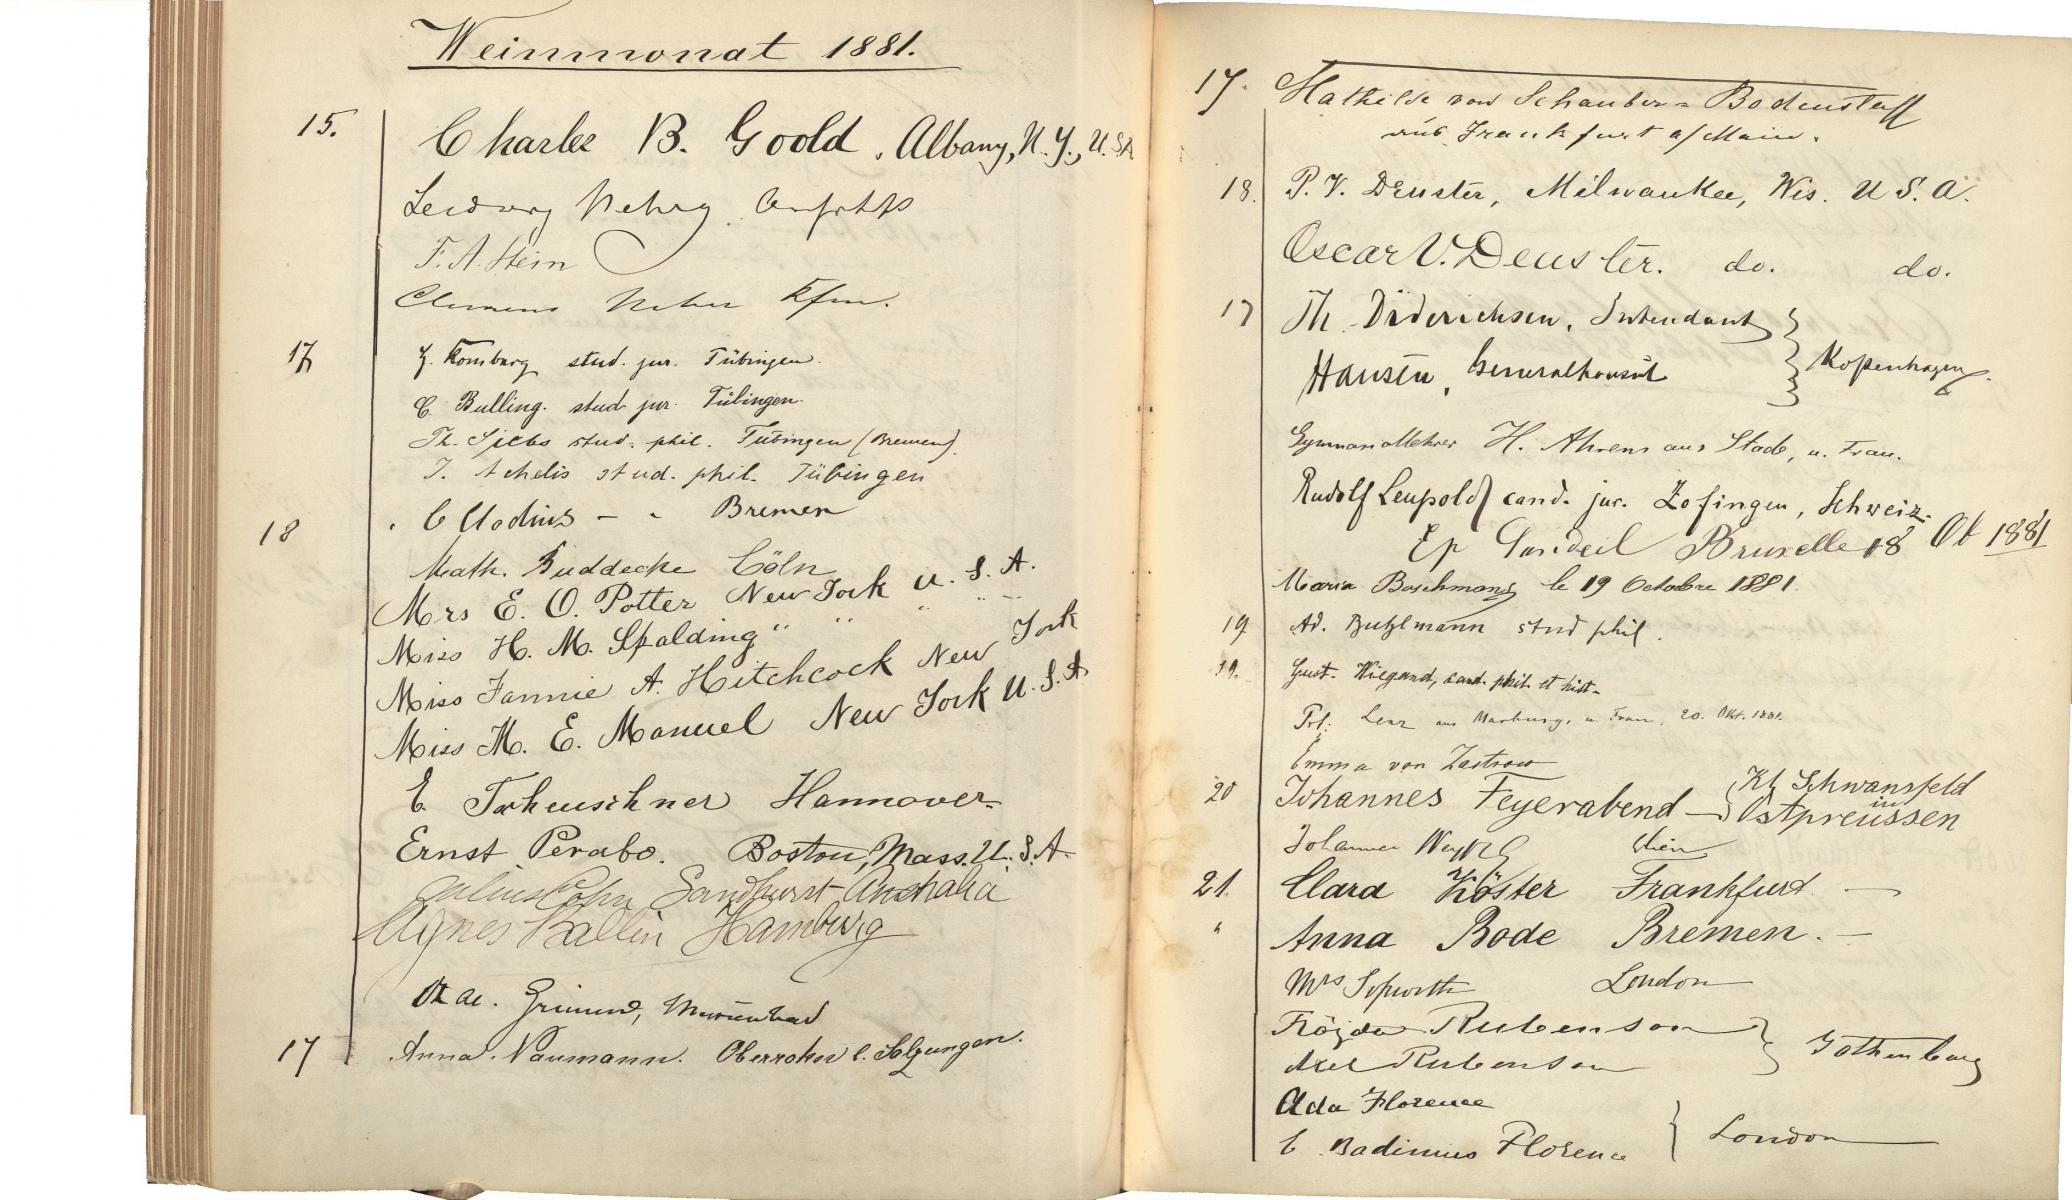 Weinmonat 1881.
15. Charles B. Goold, Albany, N. Y., U. S A
F. A. Stein
Clemens Kfm.
17 Homburg stud. jur. Tübingen.
C. Bulling. stud jur. Tübingen.
Th. Siebs stud. phil. Tübingen (Bremen).
J. Achelis stud. phil. Tübingen
18 C Clodius - - Bremen
Math. Buddecke Cöln
Mrs E. O. Potter New York U. S. A.
Miss H. M. Spalding " " " " "
Miss Fannie A. Hitchcock New York
Miss M. E. Manuel New York U. S. A
E Hannover.
Ernst Perabo. Boston, Mass. U. S. A.
Julius Cohn Sandhurst Australia
Agnes Ballin Hamburg
Marienbad
17 Anna Naumann. Salzungen.
17. Mathilde von Schauber = Bodenstaff
aus Frankfurt a/Main.
18. P. V. Deuster, Milwaukee, Wis. U. S. A.
Oscar V. Deuster. do. do.
17 Th. Diderichsen, Intendant
Hansen, Generalkonsul
Kopenhagen.
Gymnasiallehrer H. Ahrens aus Stade, u. Frau.
Rudolf Leupold cand. jur. Zofingen, Schweiz.
Ep Bruxelle 18 Ob 1881
Maria Boschmans le 19 Octobre 1881.
19 Ad. Butzlmann stud phil.
19. Gust. Wiegand, cand. phil et hist.
Prf. Lenz aus Marburg, u. Frau, 20. Okt. 1881.
Emma von Zastrow
20 Johannes Feyerabend - Kl Schwansfeld
in
Ostpreussen
Johannes Wien
21. Clara Köster Frankfurt. -
" Anna Bode Bremen. -
Mrs London
Fröjda Rubenson
Axel Rubenson
Gothenburg
Ada Florence
E Badinius Florence
London